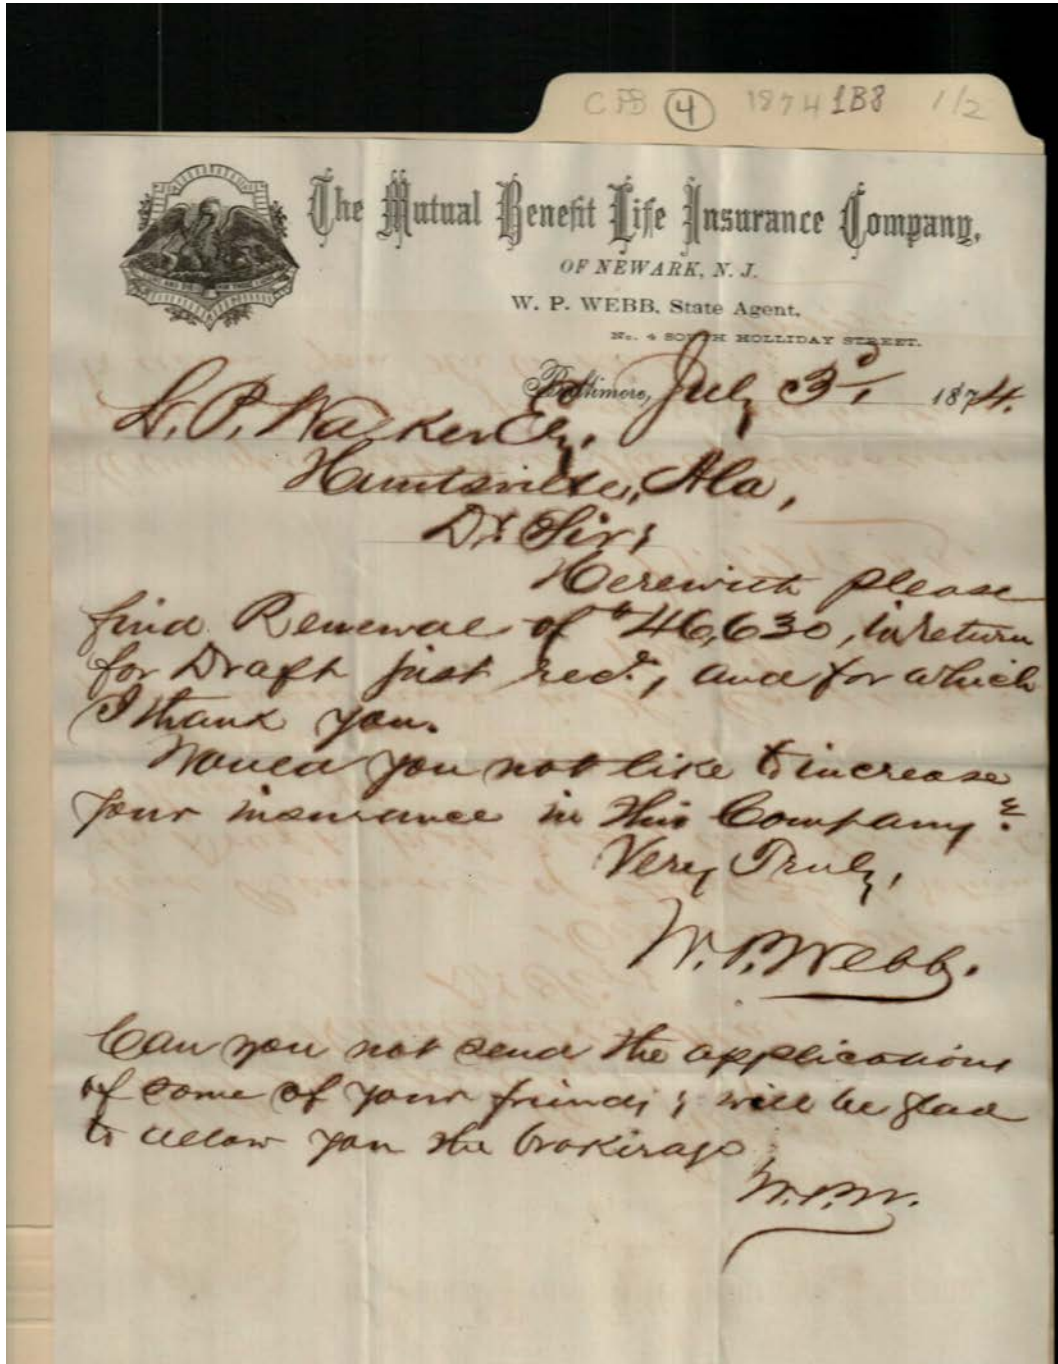 CFB 4 1874 1B8 1/2
The Mutual Benefit Life Insurance Company,
OF NEWARK, N. J.
W. P. WEBB, State Agent,
No. 4 SOUTH HOLLIDAY STREET.
Baltimore, July 3d, 1874.
L. P. Walker Esq.
Huntsville, Ala,
Dr Sir;
Herewith please
find Renewal of #46,630, in return
for Draft just recd., and for which
I thank you.
Would you not like to increase
your insurance in this Company?
Very Truly,
W. P. Webb.
Can you not send the applications
of some of your friends; will be glad
to allow you the brokerage
W.P.W.